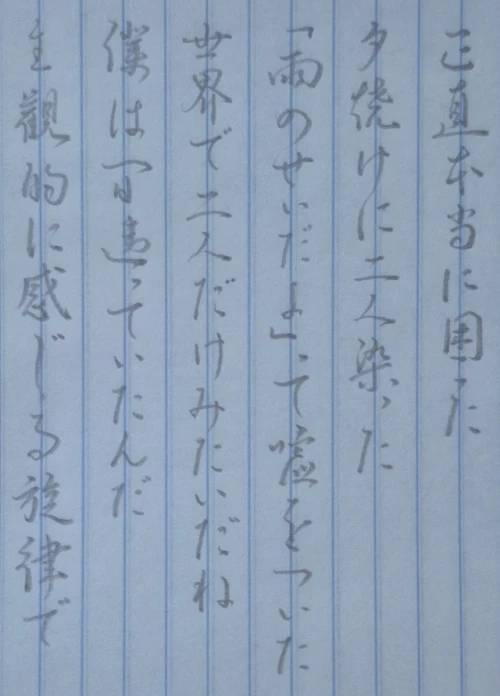 正直本当に困った
夕焼けに二人染まった
「雨のせいだよ」って嘘をついた
世界で二人だけみたいだね
僕は間違っていたんだ
主観的に感じる旋律で